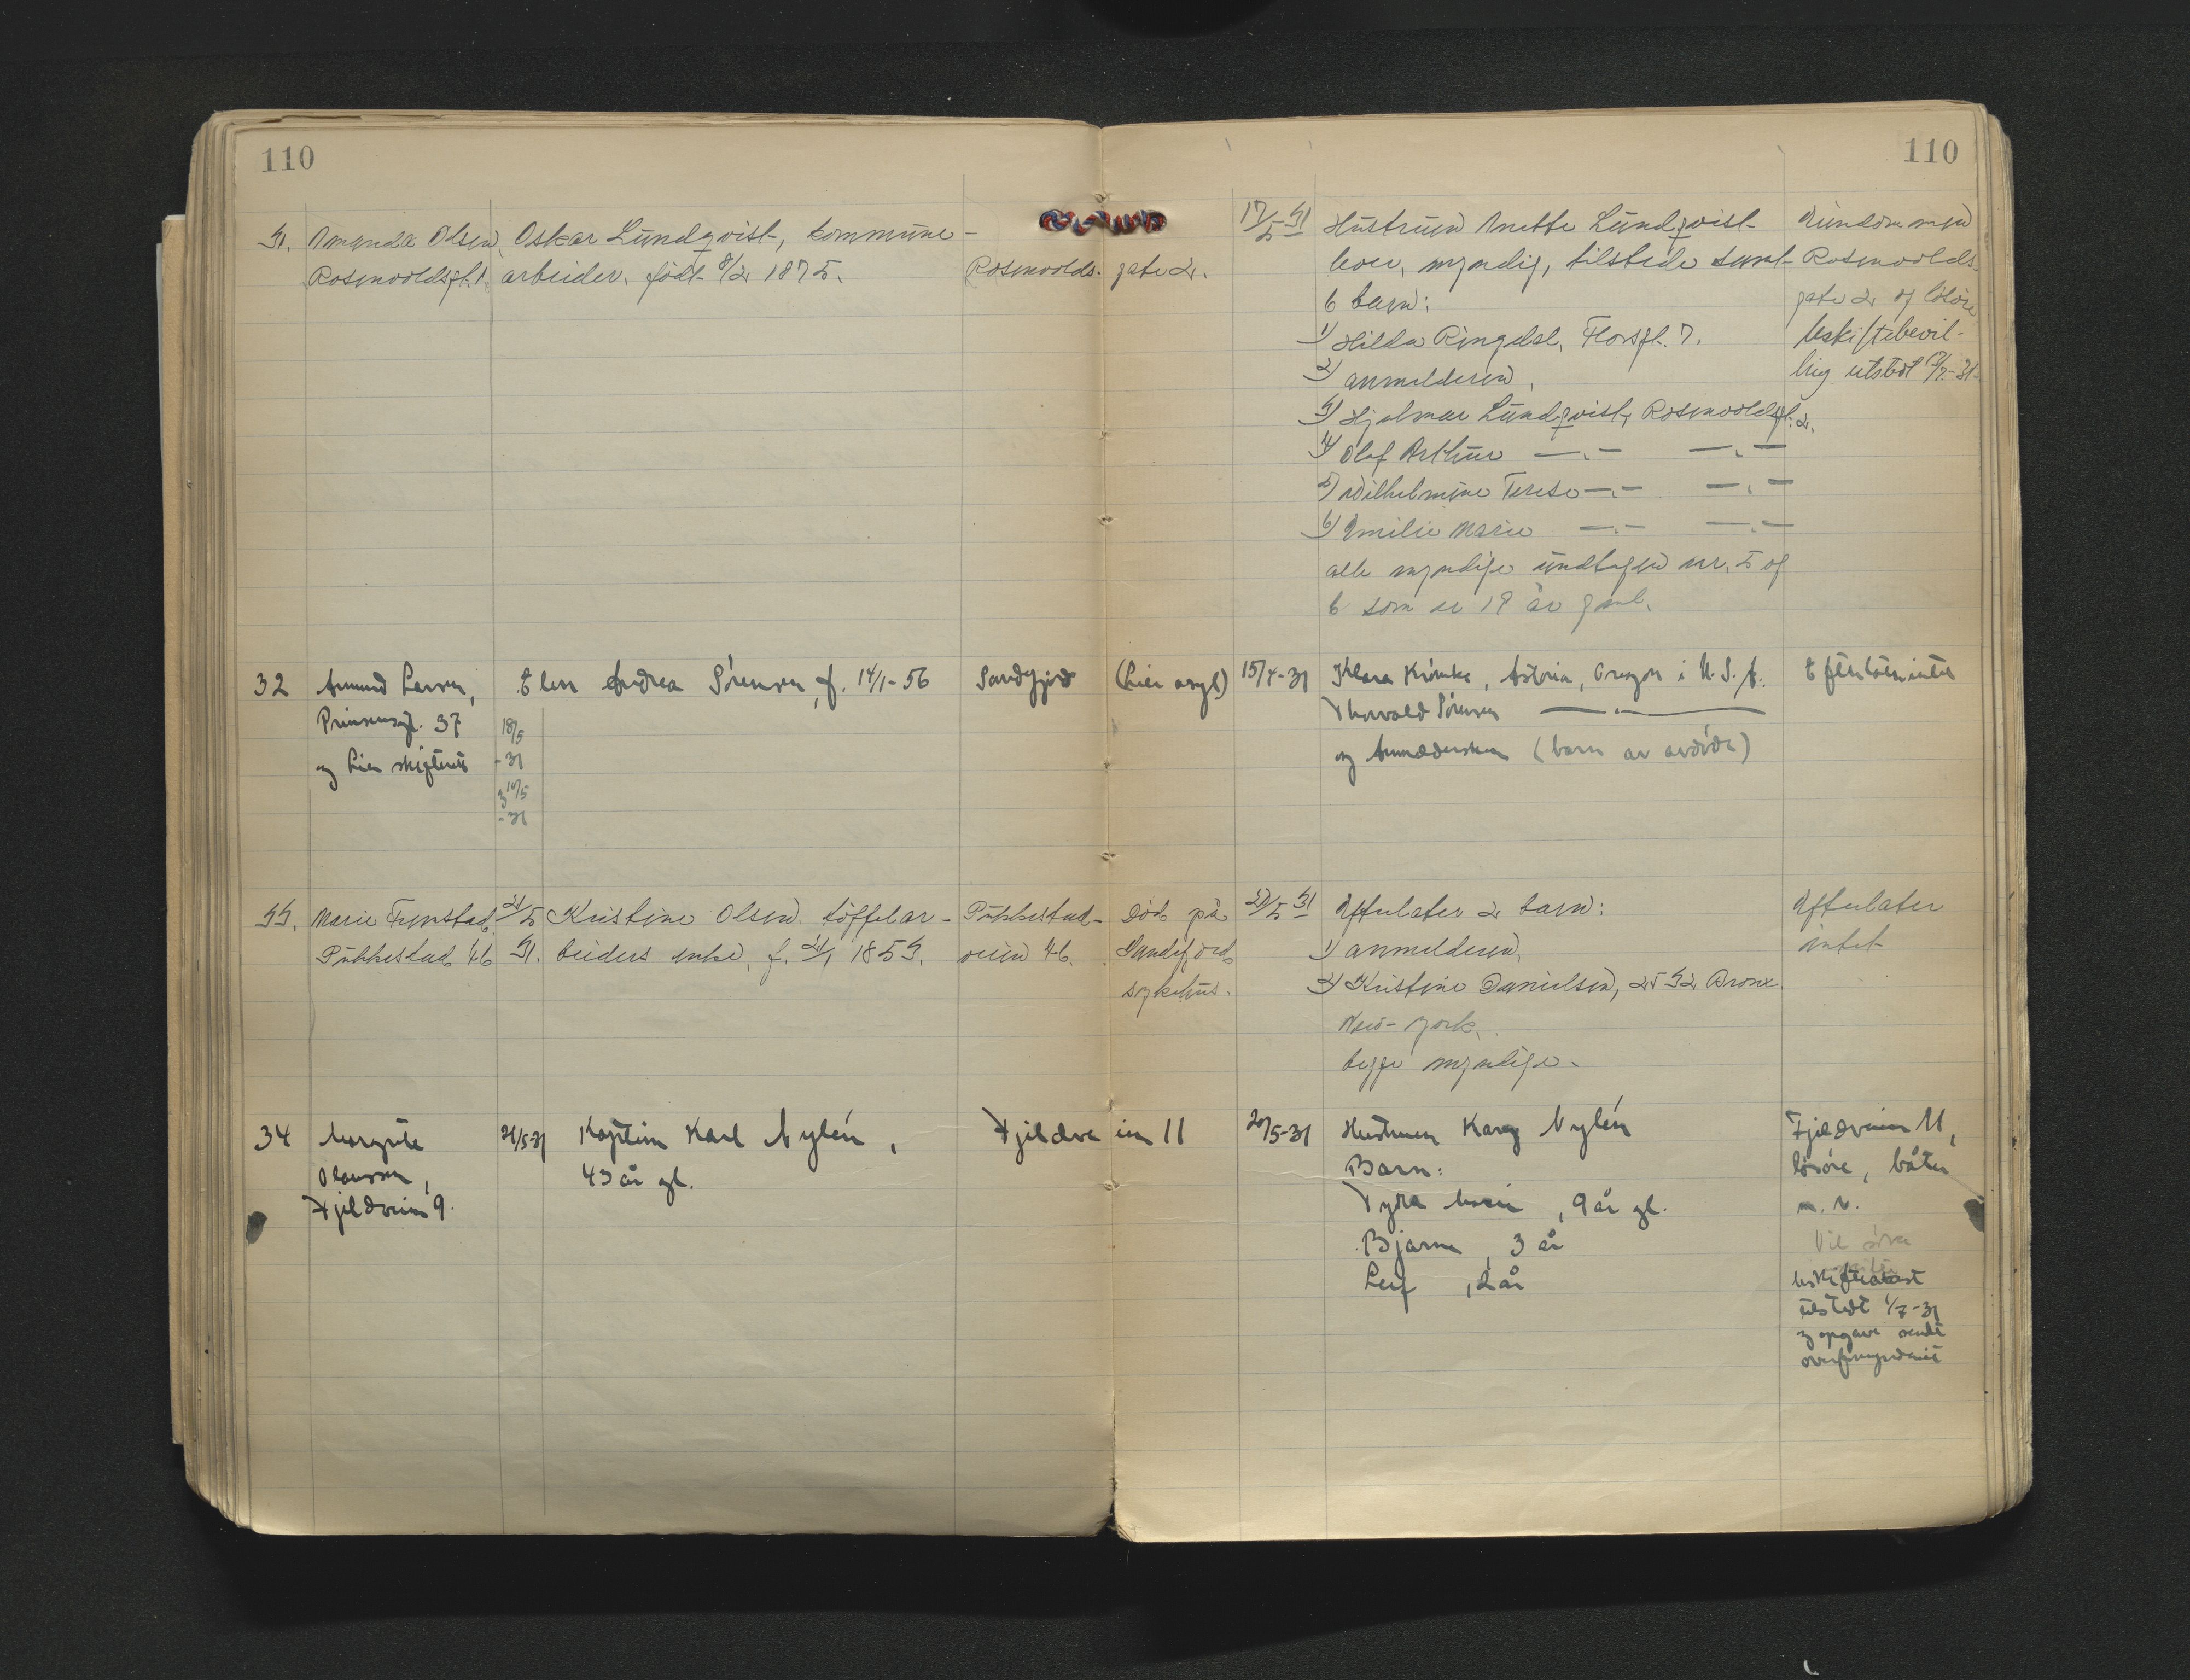 110
110
31. Amanda Olsen, Oskar Lundqvist, kommune-
Rosenvoldsgt. 1. arbeider, født 8/2 1875. Rosenvolds- gate 2.
17/5-31 Hustruen Anette Lundqvist
lever, myndig, tilstede samt
6 barn:
1) Hilda Ringdal, Florsgt. 7.
2) anmelderen.
3) Hjalmar Lundqvist, Rosenvoldsgt. 2.
4) Olaf Arthur —.— —.—
5) Wilhelmine Terese —.— —.—
6) Emilie Marie —.— —.—
alle myndige undtagen nr. 5 og
6 som er 18 år gml.
Eiendommen
Rosenvolds-
gate 2 og løsøre
Uskiftebevil-
ling utstedt /7-31-
32 Amund Larsen, Elen Andrea Sørensen, f. 14/1-56 Sandefjord (Lier asyl) 15/4-31 Klara Krömke, Astoria, Oregon i U.S.A. Efterlater intet
Prinsensgt. 37 18/5 Thorvald Sørensen —.—
og Lier skifterett -31 og Anmelderen (barn av avdøde)
10/5
-31
33. Marie Furustad, 21/5 Kristine Olsen, tøffelar- Pukkestad- død på 20/5 31 Efterlater 2 barn: Efterlater
Pukkestadv. 46 31. beiders enke, f. 21/1 1853. veien 46. Sandefjord 1) anmelderen. intet
sykehus. 2) Kristine Danielsen, 2532 Bronx
New-York.
begge myndige.
34 Margrete 21/5-31 Kaptein Karl Nylén, Fjeldve ien 11 20/5-31 Hustruen Karen Nylén Fjeldveien 11,
Olaussen, 43 år gl. Barn: løsøre, båter
Fjeldveien 9. Thyra Marie, 9 år gl. m. v.
Bjarne, 3 år Vil søke
Leif, 2 år
uskifteattest
utstedt 1/7-31
og opgave sendt
overformynderiet